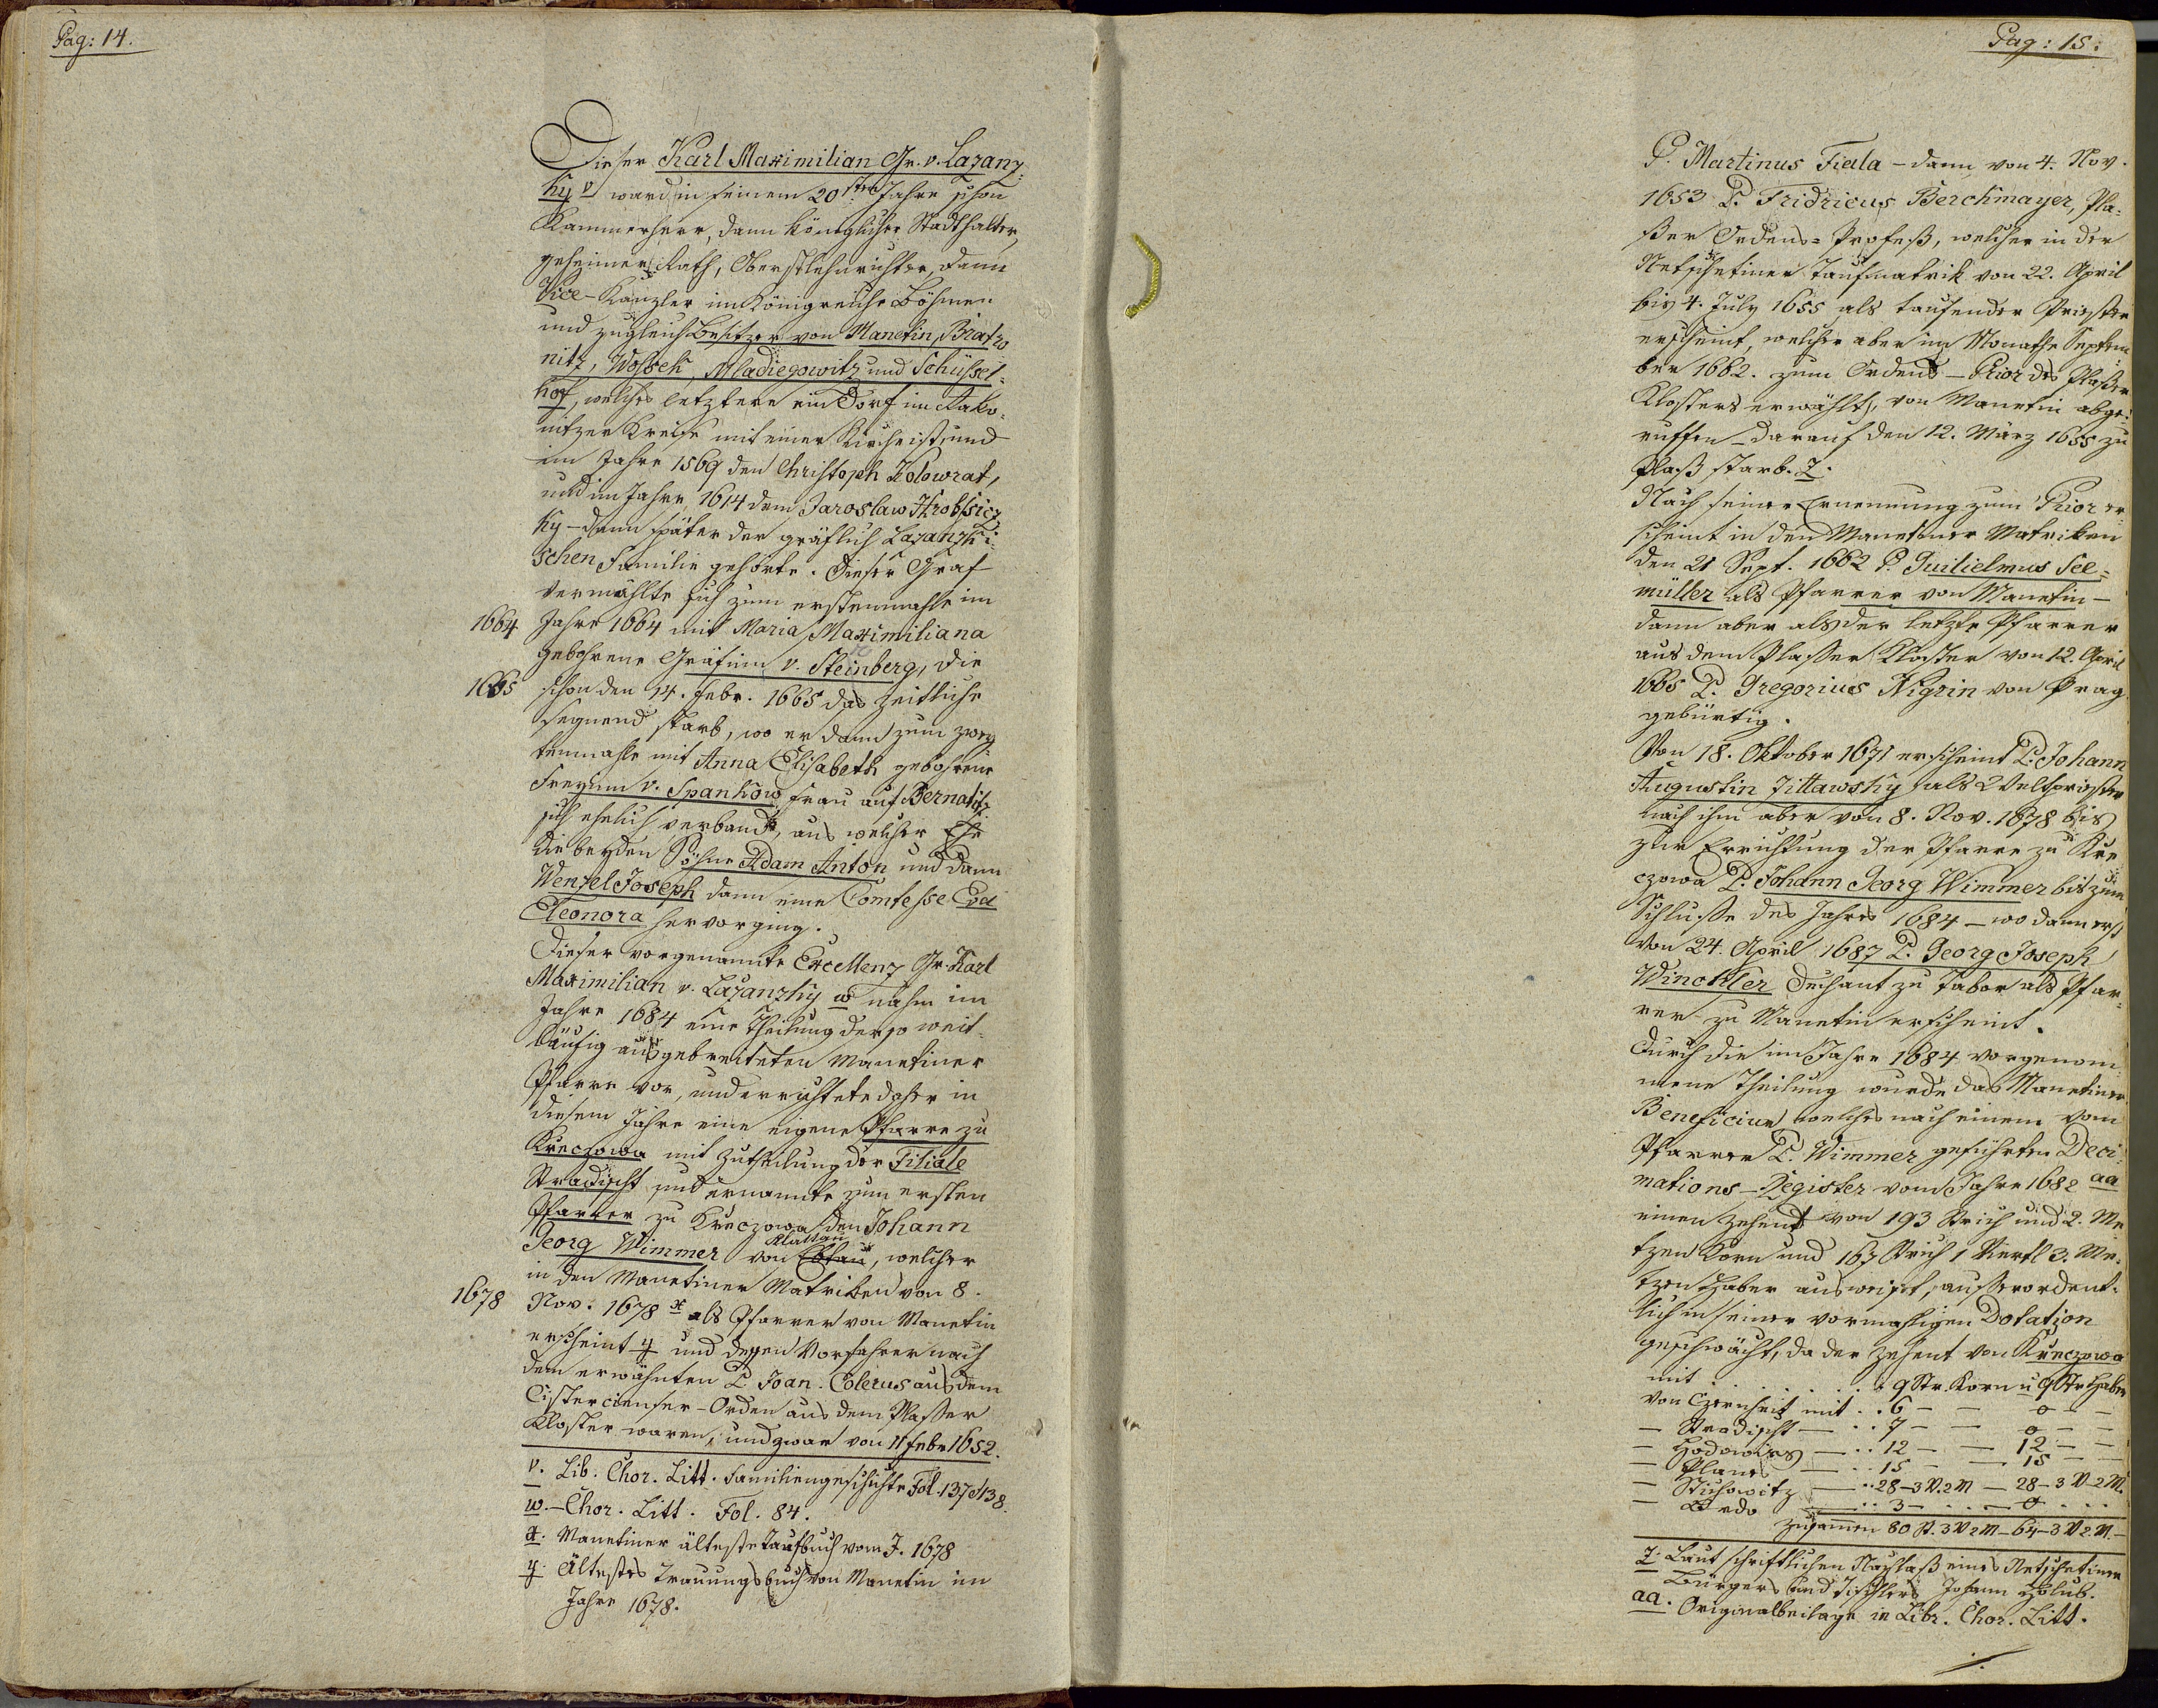 Pag: 14.
Dieser Karl Maximilian Gr. v. Lazanz,
ky v ward in seinem 20sten Jahre schon
Kammerherr, dann königlicher Stadthalter,
geheimer Rath, Oberstlehnrichter, dann
Vice-Kanzler im Königreiche Böhmen
und zugleich Besitzer von Manetin, Bratro
nitz, Wossek, Mladiegowitz und Schüssel=
hof, welches letztere ein Dorf im Rako,
nitzer Kreise mit einer Kirche ist, und
im Jahre 1569 den Christoph Kolowrat,
und im Jahre 1614 dem Jaroslaw Hrobssicz
ky - dann später der gräflich Lazanzki,
schen Familie gehörte. Dieser Graf
vermählte sich zum erstenmahle im
1664 Jahre 1664 mit Maria Maximiliana
gebohrene Gräfinn v. Steinberg, die
1665 schon den 14. Febr. 1665 das Zeitliche
segnend starb, wo er dann zum zwey
tenmahle mit Anna Elisabeth gebohrene
Freyinn v. Spankow Frau auf Bernatitz
sich ehelich verband, aus welcher Ehe
die beyden Söhne Adam Anton und dann
Wenzel Joseph dann eine Comtesse Eva
Eleonora hervorging.
Dieser vorgenannte Excellenz Gr. Karl
Maximilian v. Lazanzky w nahm im
Jahre 1684 eine Theilung der so weit=
läufig ausgebreiteten Manetiner
Pfarre vor, und errichtete daher in
diesem Jahre eine eigene Pfarre zu
Kreczowa mit Zutheilung der Filiale
Stradischt und ernannte zum ersten
Pfarrer zu Kreczowa den Johann
Klattau
Georg Wimmer von , welcher
in den Manetiner Matriken von 8.
1678 Nov. 1678 x als Pfarrer von Manetin
erscheint y und dessen Vorfahrer nach
dem erwähnten P. Joan. Colerus aus dem
Cistercienser-Orden aus dem Plasser
Kloster waren, und zwar von 11 Febr 1652.
v. Lib. Chor. Litt. Familiengeschichte Fol. 137 & 138.
w. - Chor. Litt. Fol. 84.
x. Manetiner älteste Taufbuch vom J. 1678
y. Ältestes Trauungsbuch von Manetin im
Jahre 1678.
Pag: 15:
P. Martinus Fiala - dann von 4. Nov.
1653 P. Fridricus Berckmayer, Pla=
ßer Ordens=Profeß, welcher in der
Netschetiner Taufmatrik von 22. April
bis 4. July 1655 als taufender Priester
erscheint, welcher aber im Monathe Septem
ber 1662. zum Ordens-Prior des Plaßer
Klosters erwählt, von Manetin abge=
ruffen - darauf den 12. März 1655 zu
Plaß starb. z.
Nach seiner Ernennung zum Prior er=
scheint in den Manetiner Matriken
den 21 Sept. 1662 P. Guilielmus See=
müller als Pfarrer von Manetin -
dann aber als der letzte Pfarrer
aus dem Plasser Kloster von 12. April
1665 P. Gregorius Nigrin von Prag
gebürtig.
Von 18. Oktober 1671 erscheint P. Johann
Augustin Zittawsky als Weltpriester
nach ihm aber von 8. Nov. 1678 bis
zur Errichtung der Pfarre zu Kre
czowa P. Johann Georg Wimmer bis zum
Schluße des Jahres 1684 - wo dann erst
von 24. April 1687 P. Georg Joseph
Winckler Dechant zu Tabor als Pfar=
rer zu Manetin erscheint.
Durch die im Jahre 1684 vorgenom
mene Theilung wurde das Manetiner
Beneficium welches nach einem vom
Pfarrer P. Wimmer geführten Deci=
mations-Register vom Jahre 1682 aa
einen Zehend von 193 Strich und 2. Me
tzen Korn und 167 Strich 1 Viertl 3. Me=
tzen Haber ausweiset, ausserordent=
lich in seiner vormahligen Dotation
geschwächt, da der Zehent von Kreczowa
mit . . . . . . . . 9 Str. Korn u 9 Str Haber
von Czernheit mit . . 6 - - 0 - -
- Stradischt - . . 7 - - 0 - -
- Hodowies - . . 12 - - 12 - -
- Planes - . . 15 - - 15 - -
- Stichowitz - . . 28 - 3 V. 2 M - 28 - 3 V - 2 M.
- - . . 3 - . . - 0 . . .
Zusammen 80 St. 3 V 2 M - 64 - 3 V 2. M. -
z. Laut schriftlichen Nachlaß eines Netschetiner
Bürgers und Tischlers Johann Holub.
aa. Originalbeilage in Libr. Chor. Litt.
./.